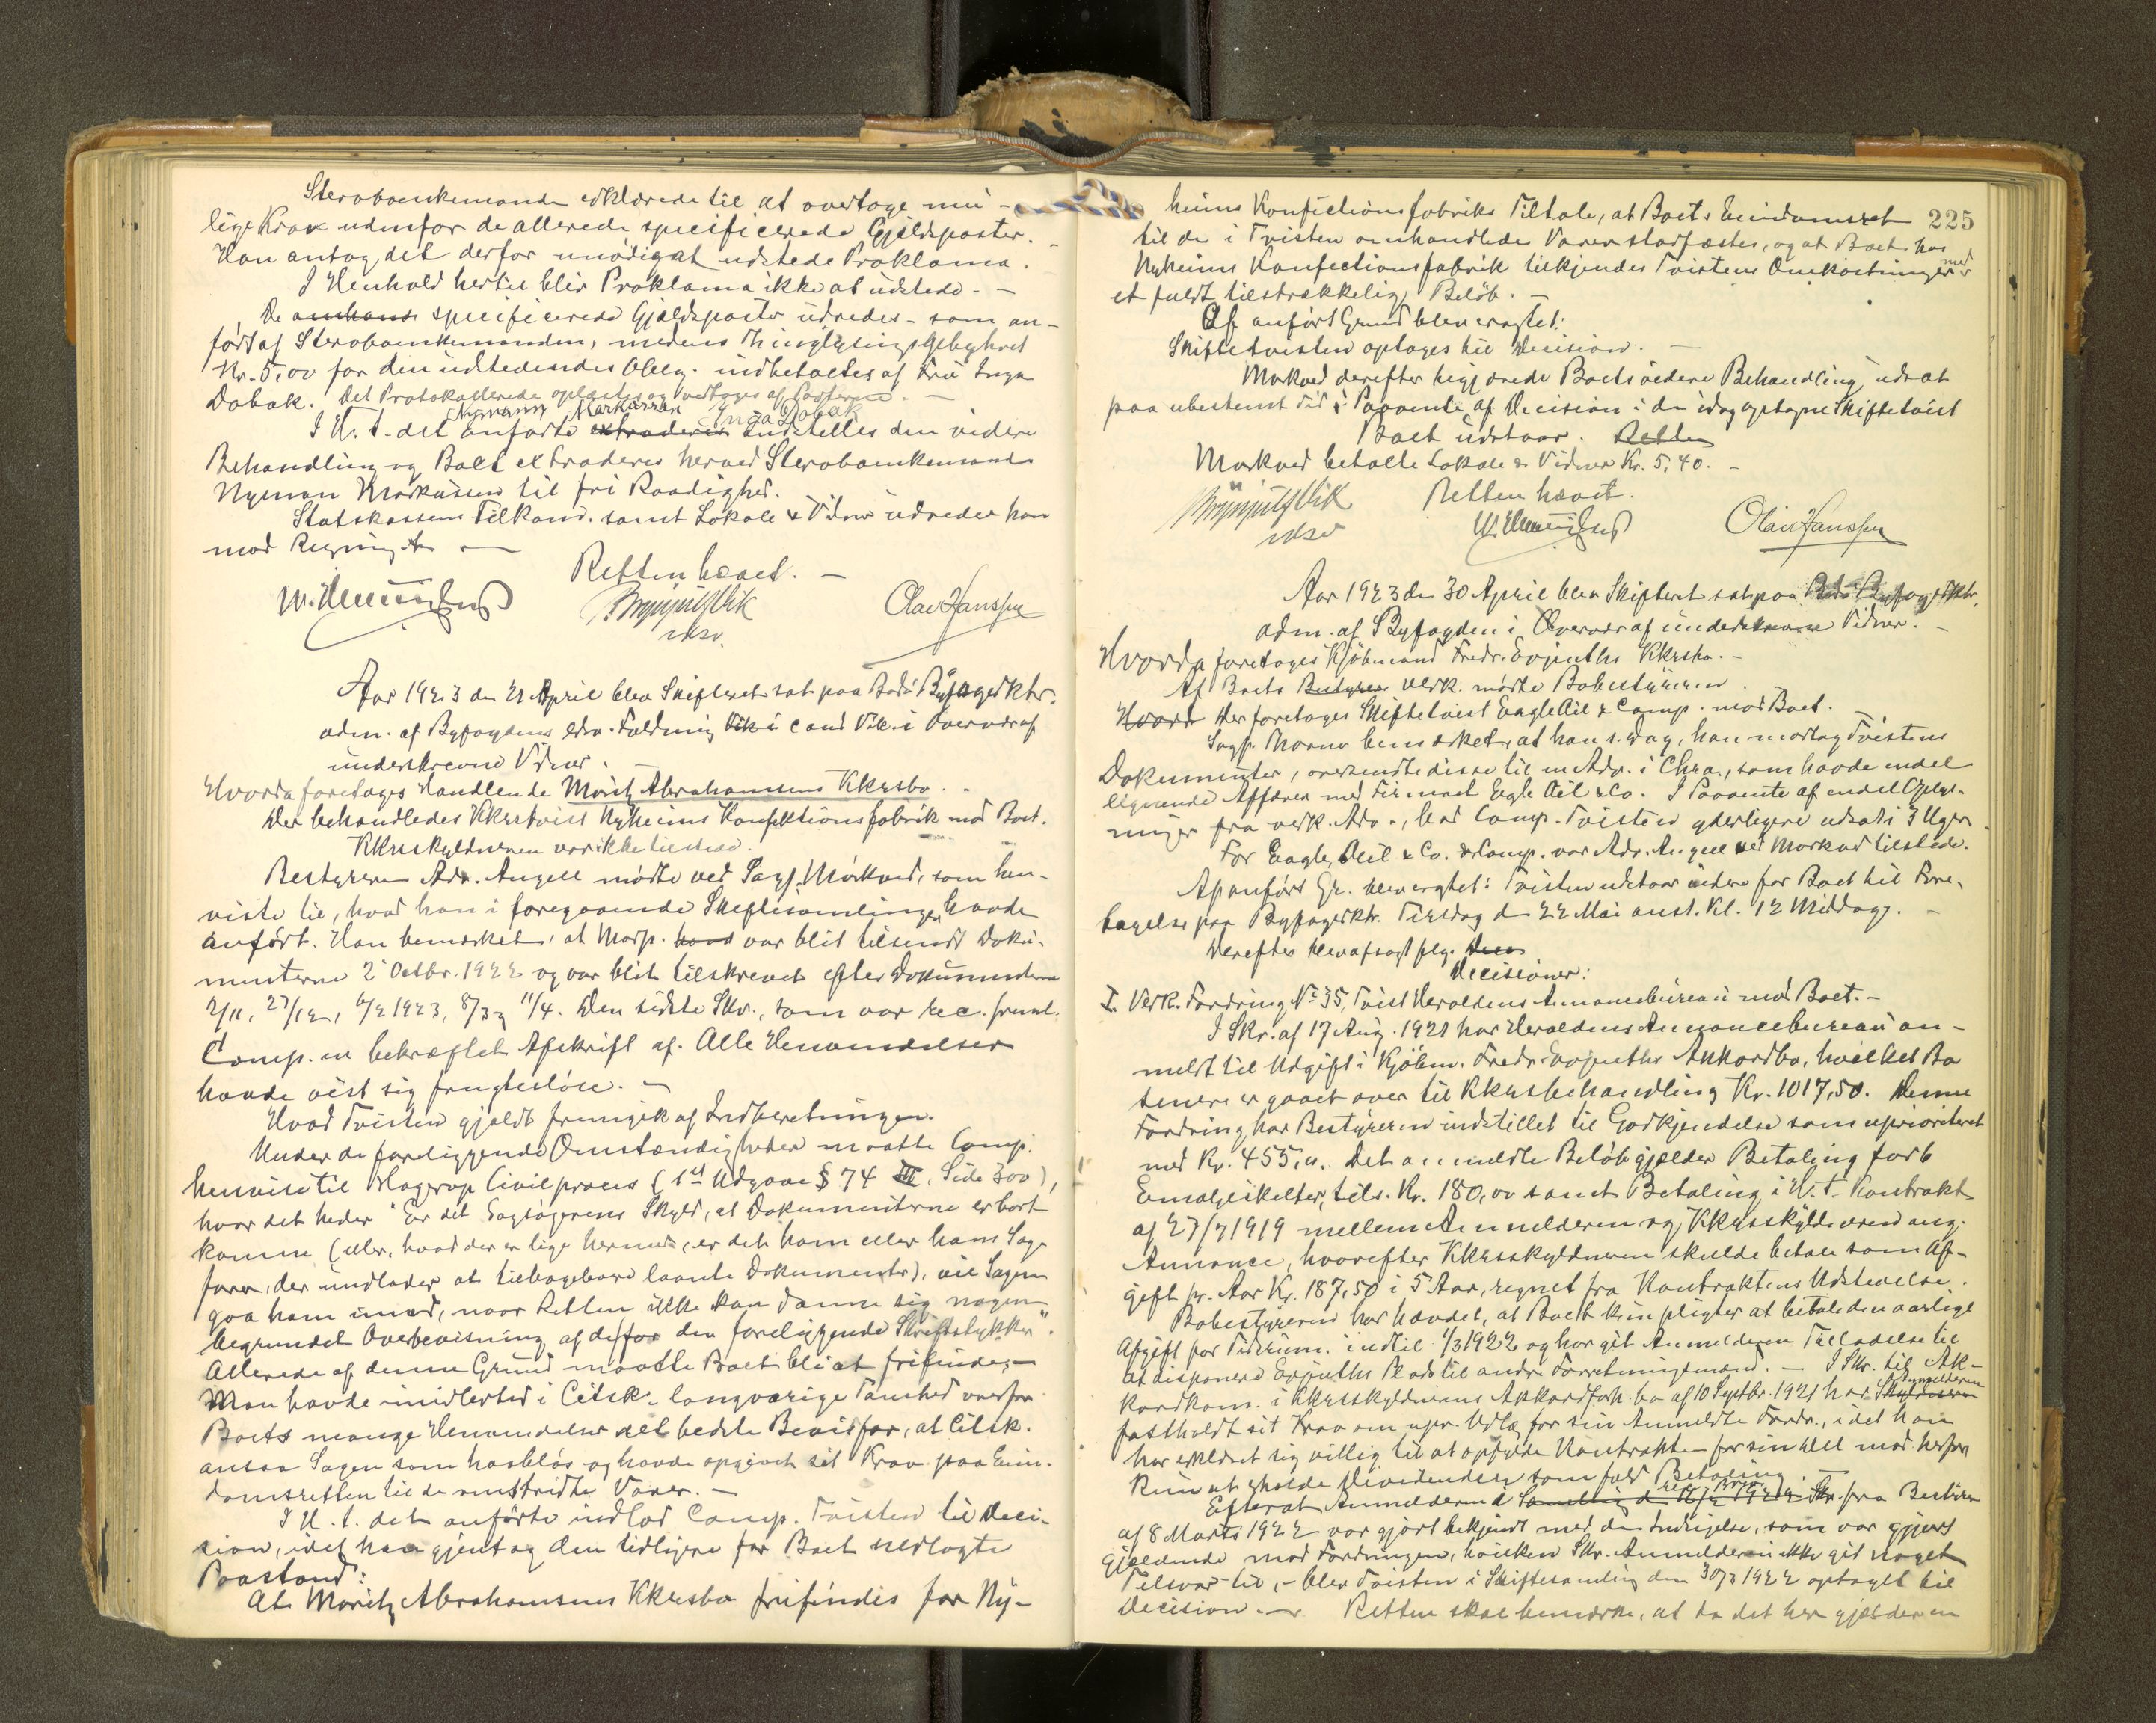 Stervboenkemanden erklærede til at overtage mu-
lige Krav udenfor de allerede specificerede Gjældsposter.
Han antog det derfor unødigat udstede Proklama.
I Henhold hertil blir Proklama ikke at udstede. -
De specificerede Gjældsposter udredes - som an-
ført af Stervboenkemanden, medens Thinglysingsgebyhret
Kr. 5,00 for den udstedendes Oblig. indbetaltes af Fru Inga
Dobak. Det Protokollerede oplæstes og vedtoges af Parterne. -
Nymann Markussen Inga Dobak
I H. t. det anførte extraderes indstilles den videre
Behandling og Boet extraderes herved Stervboenkemand
Nyman Markussen til fri Raadighed.
Statskassens Tilkom. samt Lokale & Vidner udredes han
mod Regning.
Retten hævet. -
Brynjulf Vik
Olav Hanssen
Aar 1923 den 21 April blev Skifteret sat paa Bodø Byfogedktr.
adm. af Byfogdens edsv. Fuldmægtig cand Vik i Overvær af
underskrevne Vidner.
Hvorda foretages Handlende Moritz Abrahamsens Kkursbo.
Der behandledes Kkurstvist Nyheims Konfektionsfabrik mod Boet.
Kkurskyldneren var ikke tilstede.
Bestyreren Adv. Angell mødte ved Sagf. Mørkved, som hen-
viste til, hvad han i foregaaende Skiftesamlinger havde
anført. Han bemærket, at Modp. havd var blit tilsendt Doku-
menterne 2 Octbr. 1922 og var blit tilskrevet efter Dokumenterne
2/11, 27/12, 6/2 1923, 8/3 og 11/4. Den sidste Skr., som var rec. freml.
Comp. en bekræftet Afskrift af. Alle Henvendelser
havde vist sig frugtesløse. -
Hvad Tvisten gjaldt fremgik af Indberetningen.
Under de foreliggende Omstændigheder maatte Comp.
henvise til Hagerup Civilproces (1st Udgave § 74 III, Side 300),
hvor det heder "Er det Sagsøgerens Skyld, at Dokumenterne er bort-
komne (eller, hvad der er lige hermed, er det ham eller hans Sag-
fører, der undlader at tilbagelevere laante Dokumenter), vil Sagen
gaa ham imod, naar Retten ikke kan danne sig nogen
begrundet Overbevisning af de for den foreliggende Skriftstykker".
Allerede af denne Grund maatte Boet bli at frifinde, -
Man havde imidlertid i Citsk. langvarige Taushed overfor
Boets mange Henvendelser det bedste Bevis for, at Citsk.
ansaa Sagen som haabløs og havde opgivet sit Krav paa Eien-
domsretten til de omstridte Varer. -
I H. t. det anførte indlod Comp. Tvisten til Deci-
sion, idet han gjentog den tidligere for Boet nedlagte
Paastand:
At Moritz Abrahamsens Kkursbo frifindes for Ny-
225
heims Konfectionsfabriks Tiltale, at Boets Eiendomsret
til de i Tvisten omhandlede Varer stadfæstes, og at Boet hos
Nyheims Konfectionsfabrik tilkjendes Tvistens Omkostninger med
et fuldt tilstrækkelig Beløb. -
Af anført Grund blev eragtet:
Skiftetvisten optages til Decision. -
Mørkved derefter begjærede Boets videre Behandling udsat
paa ubestemt Tid i Paavente af Decision i den idag optagne Skiftetvist
Boet udstaar. Retten
Mørkved betalte Lokale & Vidner Kr. 5,40. -
Retten hævet.
Brynjulf Vik
Olav Hanssen
Aar 1923 den 30 April blev Skifteret sat paa Bodø Byfogedktr.
adm. af Byfogden i Overvær af underskrevne Vidner. -
Hvorda foretoges Kjøbmand Fredr. Evjenths Kkursbo. -
Af Boets Bestyrer Vedk. mødte Bobestyreren.
Hvord Her foretages Skiftetvist Eagle Oil & Comp. mod Boet.
Sagf. Moano bemærket, at han s. Dag, han modtog Tvistens
Dokumenter, oversendte disse til en Adv. i Chra., som havde endel
lignende Affærer med Firmaet Eagle Oil & Co. I Paavente af endel Oplys-
ninger fra vedk. Adv., bad Comp. Tvisten yderligere udsat i 3 Uger.
For Eagle Oil & Co. & Comp. var Adv. Angell ved Mørkved tilstede.
Af anført Gr. blev eragtet: Tvisten udstaar videre for Boet til Fore-
tagelse paa Byfogedktr. Tirsdag d 22 Mai anst. Kl. 12 Middag. -
Derefter blev afsagt flg.
Decisioner:
I. Vedk. Fordring № 35, Tvist Heroldens Annoncebureau mod Boet. -
I Skr. af 17 Aug. 1921 har Heroldens Annoncebureau an-
meldt til Udgift i Kjøbm. Fredr. Evjenths Akkordbo, hvilket Bo
senere er gaaet over til Kkursbehandling Kr. 1017,50. Denne
Fordring har Bestyreren indstillet til Godkjendelse som uprioriteret
med Kr. 455,11. Det anmeldte Beløb gjælder Betaling for 6
Emaljeskilter, tils. Kr. 180,00 samt Betaling i H. t. Kontrakt
af 27/7 1919 mellem Anmelderen og Kkursskyldneren ang.
Annonce, hvorefter Kkursskyldneren skulde betale som Af-
gift pr. Aar Kr. 187,50 i 5 Aar, regnet fra Kontraktens Udstedelse.
Bobestyreren har hævdet, at Boet kun pligter at betale den aarlige
Afgift for Tidsrum. indtil 1/3 1922 og har git Anmelderen Tilladelse til
at disponere Evjenths Plads til andre Forretningsmænd. - I Skr. til Ak-
kordkom. i Kkursskyldnerens Akkordforh. bo af 10 Septbr. 1921 har Anmelderen
fastholdt sit Krav om upr. Udlæg for sin Anmeldte Fordr., idet han
har erklæret sig villig til at opfylde Kontrakten for sin Del mod herfor
kun at erholde Dividenden som fuld Betaling. -
Efterat Anmelderen d Samling d Skr. fra Bestyrer
af 8 Marts 1922 var gjort bekjendt med den Indsigelse, som var gjort
gjældende mod Fordringen, hvilken Skr. Anmelderen ikke git noget
Tilsvar til, - blev Tvisten i Skiftesamling den 30/3 1922 optaget til
Decision. - Retten skal bemærke, at da det her gjælder en